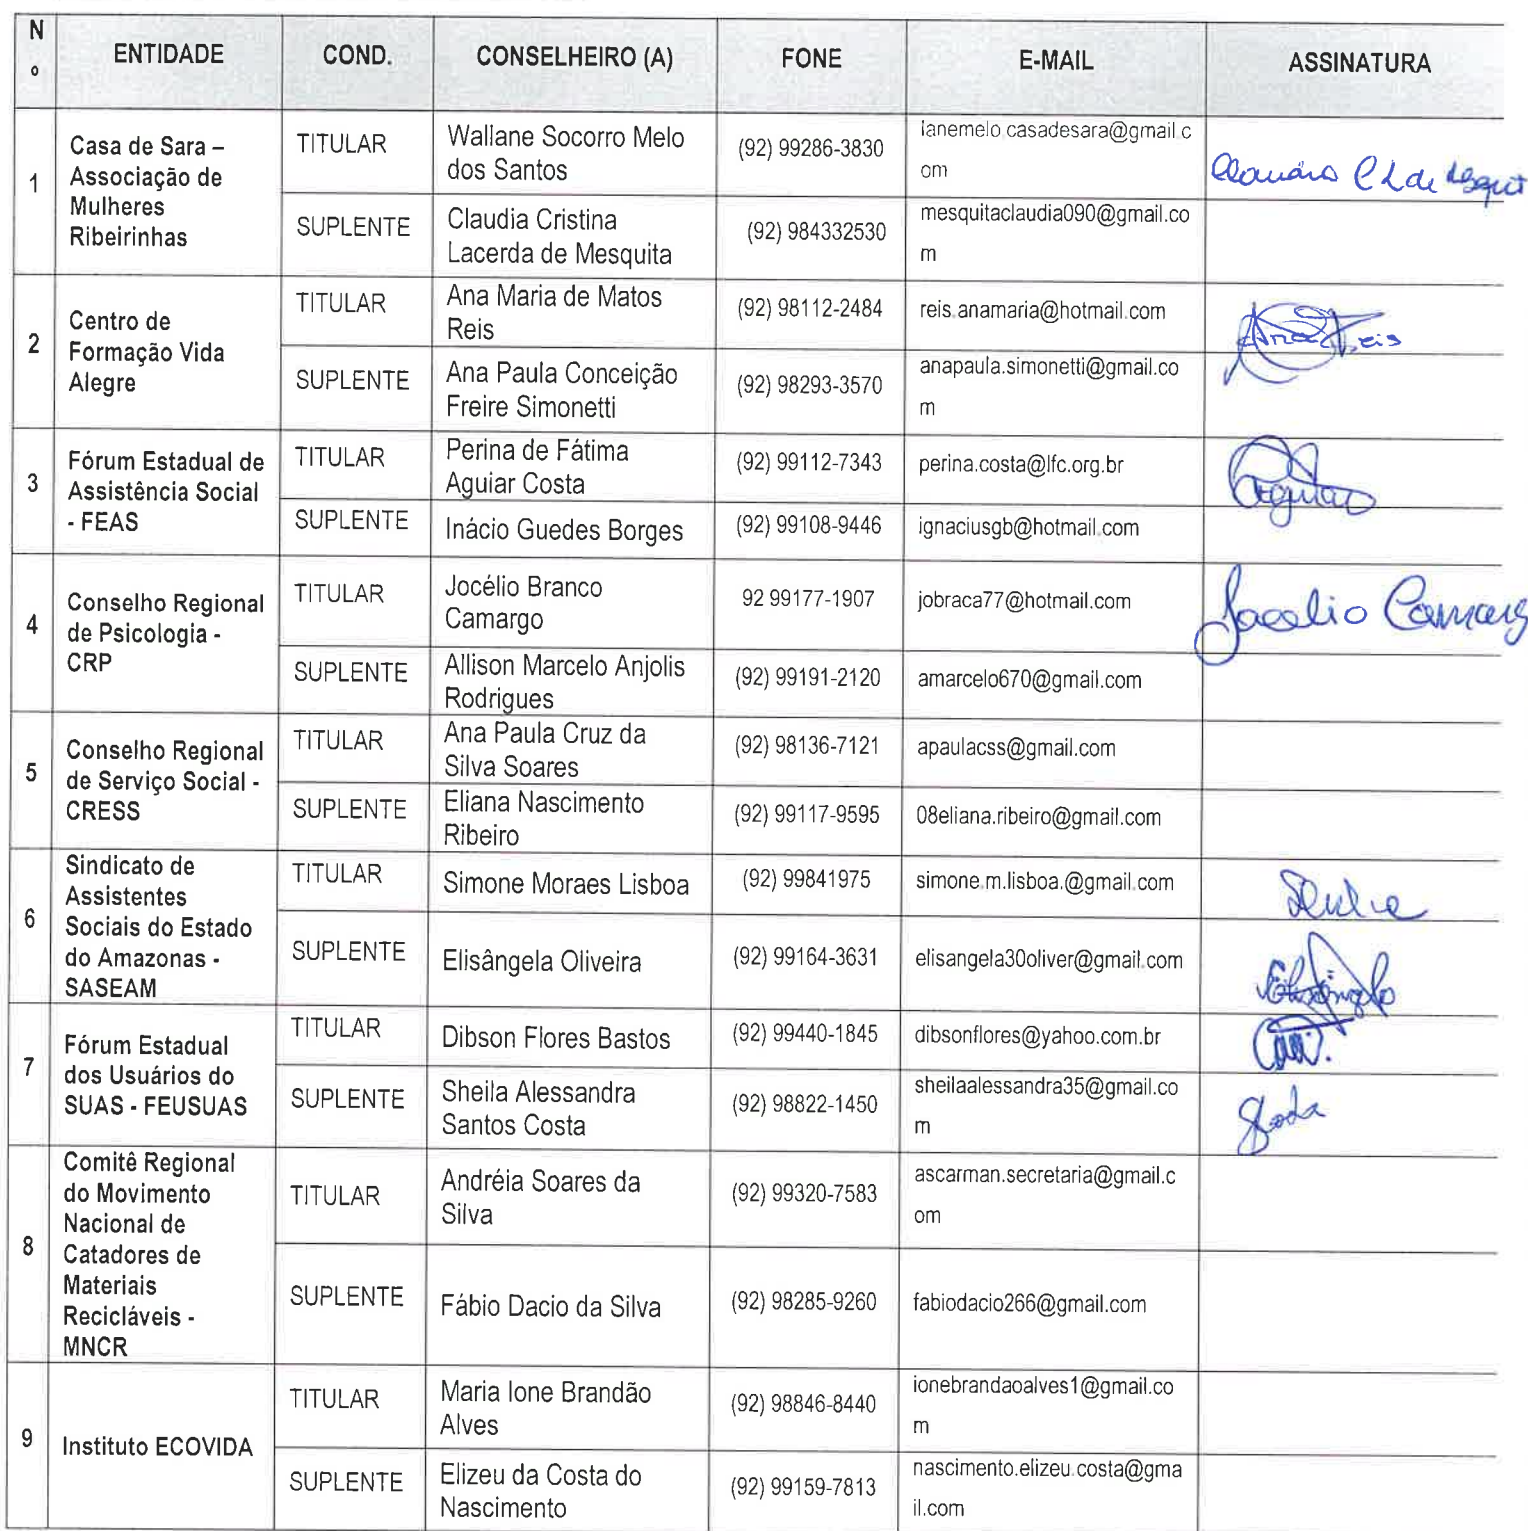 Nº ENTIDADE COND. CONSELHEIRO (A) FONE E-MAIL ASSINATURA
1
Casa de Sara –
Associação de
Mulheres
Ribeirinhas
TITULAR
Wallane Socorro Melo
dos Santos
(92) 99286-3830
ianemelo.casadesara@gmail.c
om
SUPLENTE
Claudia Cristina
Lacerda de Mesquita
(92) 984332530
mesquitaclaudia090@gmail.co
m
2
Centro de
Formação Vida
Alegre
TITULAR
Ana Maria de Matos
Reis
(92) 98112-2484
reis.anamaria@hotmail.com
SUPLENTE
Ana Paula Conceição
Freire Simonetti
(92) 98293-3570
anapaula.simonetti@gmail.co
m
3
Fórum Estadual de
Assistência Social
- FEAS
TITULAR
Perina de Fátima
Aguiar Costa
(92) 99112-7343
perina.costa@lfc.org.br
SUPLENTE
Inácio Guedes Borges
(92) 99108-9446
ignaciusgb@hotmail.com
4
Conselho Regional
de Psicologia -
CRP
TITULAR
Jocélio Branco
Camargo
92 99177-1907
jobraca77@hotmail.com
SUPLENTE
Allison Marcelo Anjolis
Rodrigues
(92) 99191-2120
amarcelo670@gmail.com
5
Conselho Regional
de Serviço Social -
CRESS
TITULAR
Ana Paula Cruz da
Silva Soares
(92) 98136-7121
apaulacss@gmail.com
SUPLENTE
Eliana Nascimento
Ribeiro
(92) 99117-9595
08eliana.ribeiro@gmail.com
6
Sindicato de
Assistentes
Sociais do Estado
do Amazonas -
SASEAM
TITULAR
Simone Moraes Lisboa
(92) 99841975
simone.m.lisboa.@gmail.com
SUPLENTE
Elisângela Oliveira
(92) 99164-3631
elisangela30oliver@gmail.com
7
Fórum Estadual
dos Usuários do
SUAS - FEUSUAS
TITULAR
Dibson Flores Bastos
(92) 99440-1845
dibsonflores@yahoo.com.br
SUPLENTE
Sheila Alessandra
Santos Costa
(92) 98822-1450
sheilaalessandra35@gmail.co
m
8
Comitê Regional
do Movimento
Nacional de
Catadores de
Materiais
Recicláveis -
MNCR
TITULAR
Andréia Soares da
Silva
(92) 99320-7583
ascarman.secretaria@gmail.c
om
SUPLENTE
Fábio Dacio da Silva
(92) 98285-9260
fabiodacio266@gmail.com
9
Instituto ECOVIDA
TITULAR
Maria Ione Brandão
Alves
(92) 98846-8440
ionebrandaoalves1@gmail.co
m
SUPLENTE
Elizeu da Costa do
Nascimento
(92) 99159-7813
nascimento.elizeu.costa@gma
il.com